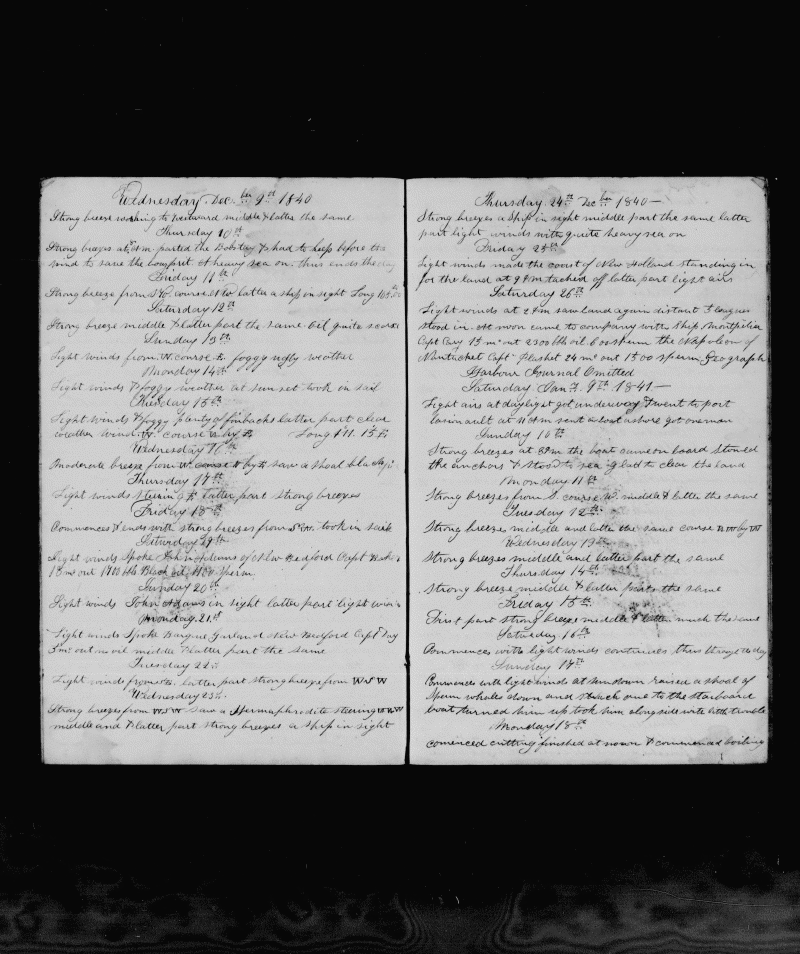 Wednesday. Dec. ber 9th 1840
Strong breeze working to Westward middle & latter the same
Thursday 10th
Strong breezes at PM parted the Bobstay & had to keep before the
wind to save the bowsprit. A heavy sea on. thus ends the day
Friday 11th
Strong breeze from course latter a ship in sight Long
Saturday 12th
Strong breeze middle & latter part the same oil quite scarce
Sunday 13th
Light winds from W. course foggy ugly weather
Monday 14th
Light winds & foggy weather at sun set took in sail
Tuesday 15th
Light winds & foggy plenty of finbacks latter part clear
weather wind W. course Long 111. 15
Wednesday 16th
Moderate breeze from W. course by saw a shoal
Thursday 17th
Light winds steering latter part strong breezes
Friday 18th
Commences & ends with strong breezes from took in sail
Saturday 19th
Light winds Spoke John Adams of New Bedford Capt
mos out 1700 bbls Black oil, Sperm
Sunday 20th
Light winds John Adams in sight latter part light winds
Monday 21st
Light winds Spoke Barque Garland New Bedford Capt
5 mos out no oil middle & latter part the same
Tuesday 22
Light winds from latter part strong breeze from WSW
Wednesday 23
Strong breezes from WSW saw a Hermaphrodite steering
middle and & latter part strong breezes a ship in sight
Thursday 24th Dec ber 1840 —
Strong breezes a Ship in sight middle part the same latter
part light winds with quite heavy sea on
Friday 25th
Light winds made the coast of New Holland standing in
for the land at PM tacked off latter part light airs
Saturday 26th
Light winds at 2 PM saw land again distant 5 leagues
stood in. At noon came to company with ship Montpelier
Capt Cary 15 mos out 2300 bbls oil 600 sperm the Napoleon of
Nantucket Capt Plasket 24 mos out 1500 sperm.
Harbour Journal Omitted
Saturday Jan. 9th 1841 —
Light airs at daylight got underway & went to port
at AM sent a boat ashore got one man
Sunday 10th
Strong breezes at PM the boat came on board stowed
the anchors & stood to sea glad to clear the land
Monday 11th
Strong breezes from S. course W. middle & latter the same
Tuesday 12th
Strong breeze middle and latter the same course NW by W
Wednesday 13th
Strong breezes middle and latter part the same
Thursday 14th
Strong breeze middle & latter part the same
Friday 15th
First part strong breeze middle & latter much the same
Saturday 16th
Commences with light winds continues thus through the day
Sunday 17th
Commences with light winds at sundown raised a shoal of
Sperm whales down and struck one to the starboard
boat turned him up took him along side with little trouble
Monday 18th
comenced cutting finished at noon & commenced boiling